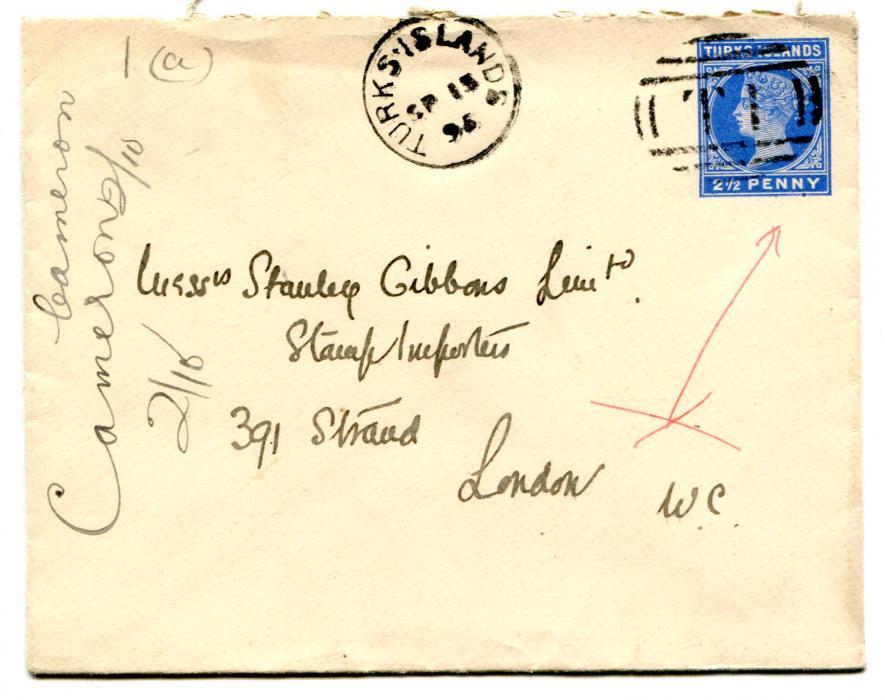 1 (a)
TURKS ISLANDS
SP 15
96
TURKS ISLANDS
T1
2½ PENNY
Messrs Stanley Gibbons Limtd.
Stamp Importers
391 Strand
London W.C.
Cameron
Cameron
2/10